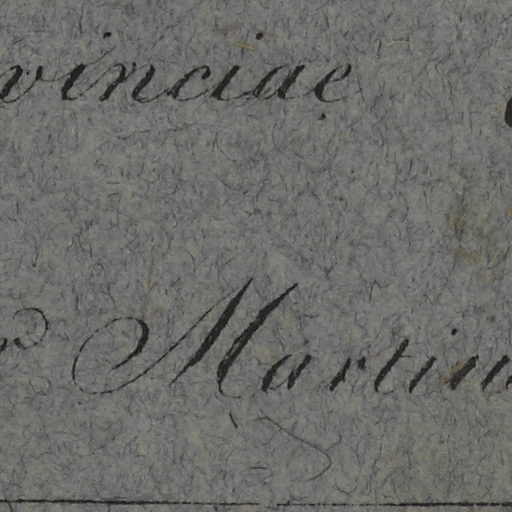 vinciae
Martin